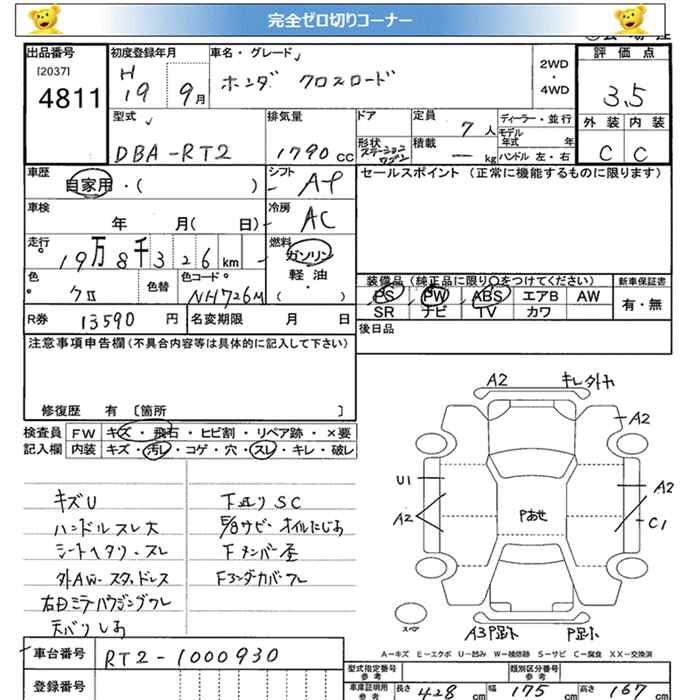 完全ゼロ切りコーナー
出品番号
[2037]
4811
初度登録年月
H 19 9月
車名・グレード
ホンダ クロスロード
2WD
・
4WD
評価点
3.5
外装 内装
C C
型式
DBA-RT2
排気量
1790 CC
ドア
形状
ステーションワゴン
定員 7 人
積載 — kg
ディーラー・並行
モデル年式 年
ハンドル 左・右
車歴
自家用・( )
シフト AT
車検
年 月( 日)
冷房 AC
走行
19万8千326km
燃料
ガソリン
軽油
・
( )
色 クロ
色替
色コード NH726M
R券 13590 円
名変期限 月 日
セールスポイント (正常に機能するものに限ります)
装備品(純正品に限り○をつけてください)
PS PW ABS エアB AW
SR ナビ TV カワ
新車保証書
有・無
後日品
注意事項申告欄(不具合内容等は具体的に記入して下さい)
修復歴 有 〔箇所 〕
検査員 FW キズ・飛石・ヒビ割・リペア跡・×要
記入欄 内装 キズ・汚レ・コゲ・穴・スレ・キレ・破レ
キズU
ハンドルスレ大
シートヘタリ・スレ
外AW-スタッドレス
右Dミラーハウジングワレ
天バリしみ
下廻りSC
サビ・オイルにじみ
Fメンバー歪
Fアンダーカバーワレ
A2
キレ
A2
U1
A2
A2
C1
Pあせ
スペア
A3 P跡ト
A-キズ E-エクボ U-凹み W-補修跡 S-サビ C-腐食 XX-交換済
車台番号 RT2-1000930
登録番号
型式指定番号
参考
類別区分番号
参考
車庫証明用
参考
長さ 428 cm
幅 175 cm
高さ 167 cm